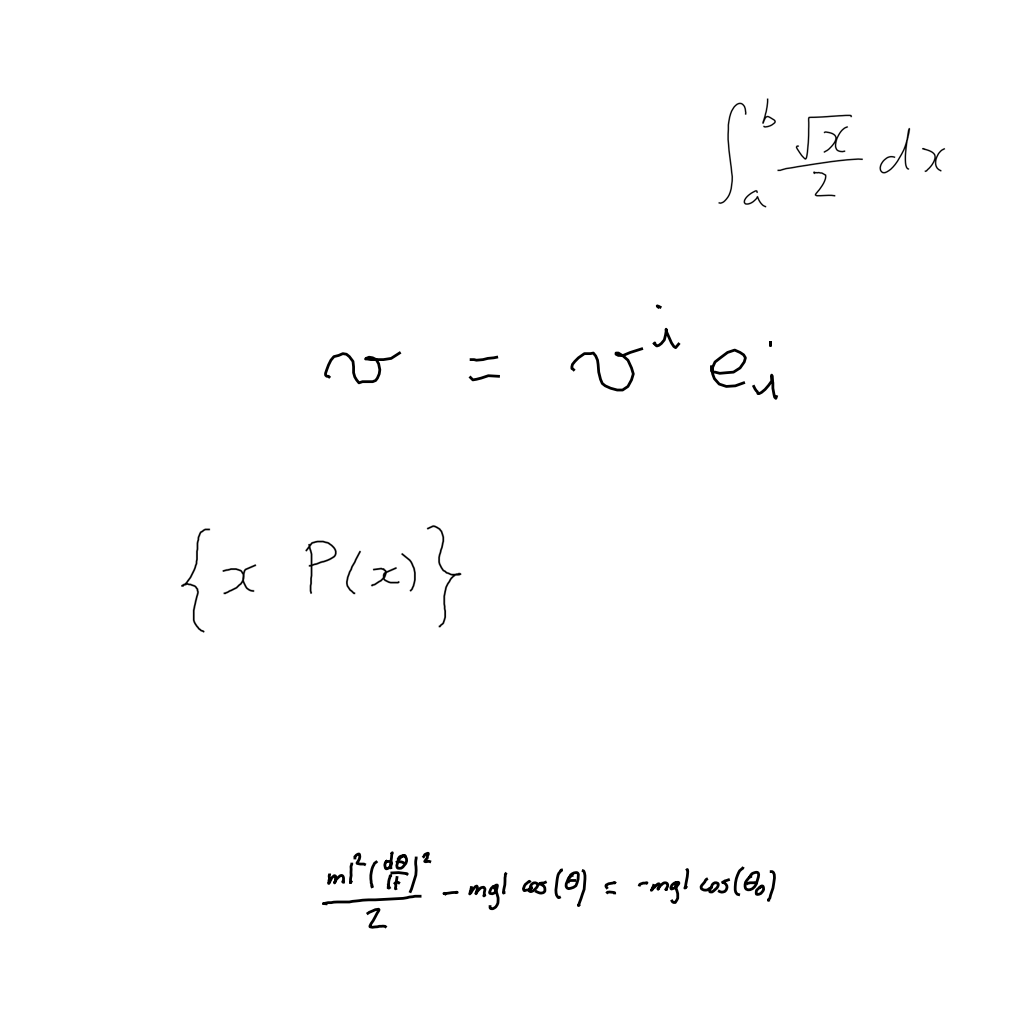 \int_a^b \frac{\sqrt{x}}{2} dx
v = v^i e_i
\{x P(x)\}
\frac{ml^2 (\frac{d\theta}{dt})^2}{2} - mgl \cos(\theta) = -mgl \cos(\theta_0)